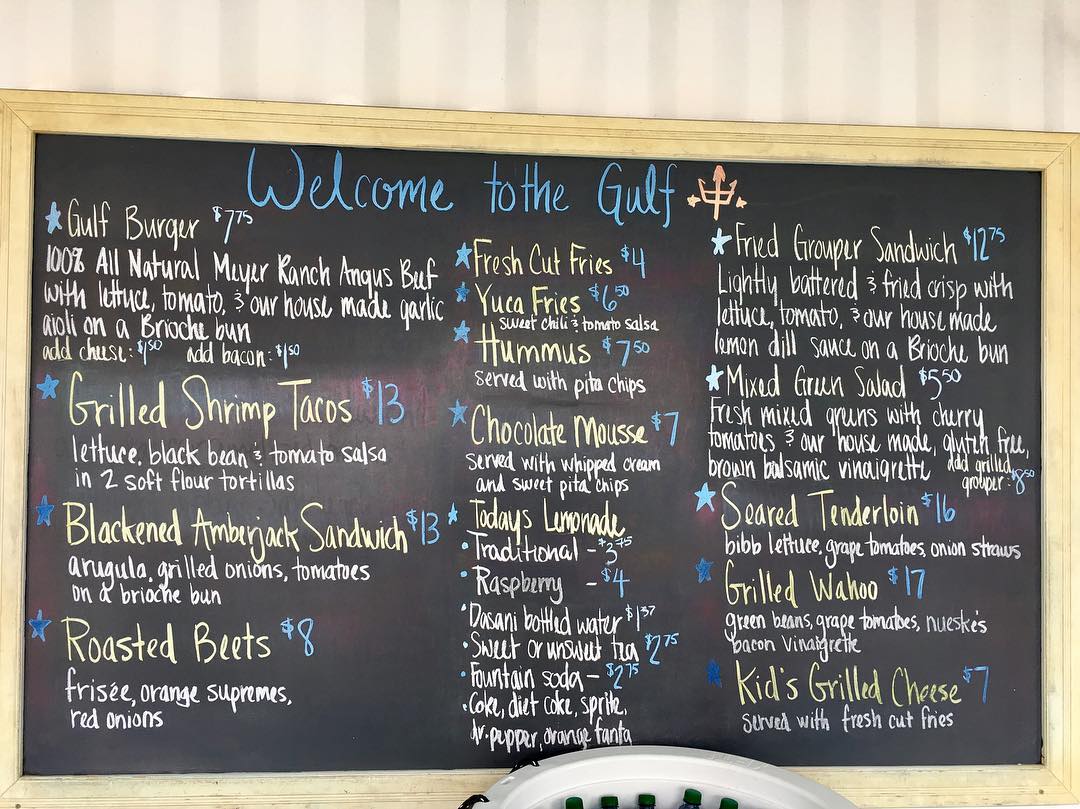 Welcome to the Gulf
Gulf Burger $7.75
100% All Natural Meyer Ranch Angus Beef
with lettuce, tomato, & our house made garlic
aioli on a Brioche bun
add cheese: $1.50 add bacon: $1.50
Grilled Shrimp Tacos $13
lettuce, black bean & tomato salsa
in 2 soft flour tortillas
Blackened Amberjack Sandwich $13
arugula, grilled onions, tomatoes
on a brioche bun
Roasted Beets $8
frisée, orange supremes,
red onions
Fresh Cut Fries $4
Yuca Fries $6.50
sweet chili & tomato salsa
Hummus $7.50
served with pita chips
Chocolate Mousse $7
served with whipped cream
and sweet pita chips
Todays Lemonade
Traditional - $3.75
Raspberry - $4
Dasani bottled water $1.37
Sweet or unsweet tea $2.75
Fountain soda - $2.75
Coke, diet coke, sprite,
dr. pepper, orange fanta
Fried Grouper Sandwich $12.75
Lightly battered & fried crisp with
lettuce, tomato, & our house made
lemon dill sauce on a Brioche bun
Mixed Green Salad $5.50
Fresh mixed greens with cherry
tomatoes & our house made, gluten free,
brown balsamic vinaigrette add grilled
grouper: $8.50
Seared Tenderloin $16
bibb lettuce, grape tomatoes, onion straws
Grilled Wahoo $17
green beans, grape tomatoes, nueske's
bacon vinaigrette
Kid's Grilled Cheese $7
served with fresh cut fries